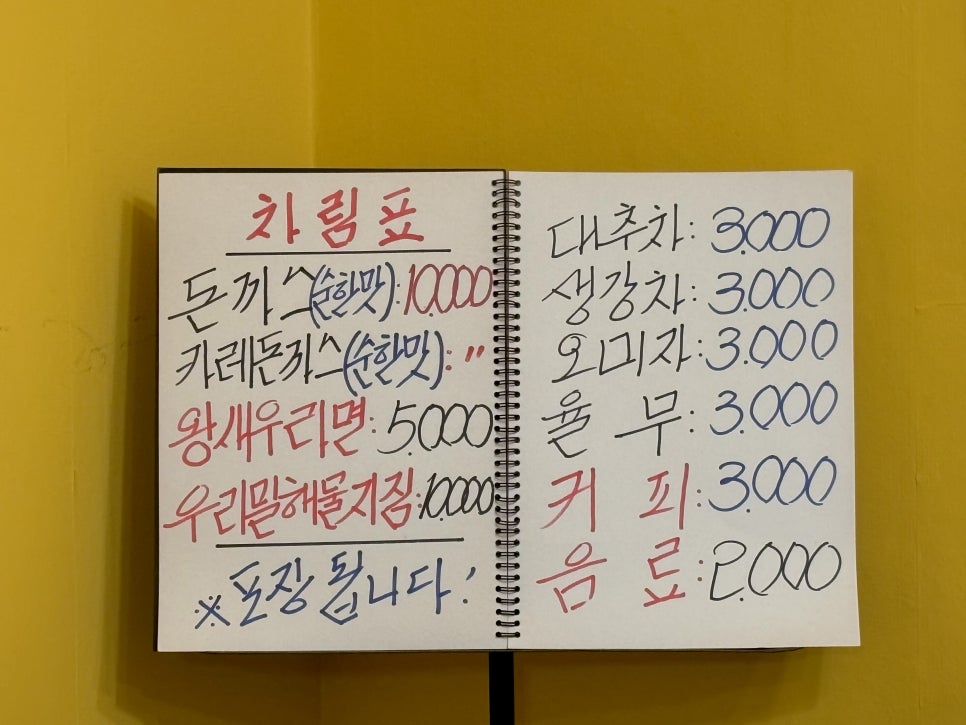 차림표
돈까스(순한맛):10.000
카레돈까스(순한맛): 〃
왕새우라면: 5.000
우리밀해물지짐:10.000
※포장 됩니다!
대추차: 3.000
생강차: 3.000
오미자: 3.000
율 무: 3.000
커 피: 3.000
음 료: 2.000